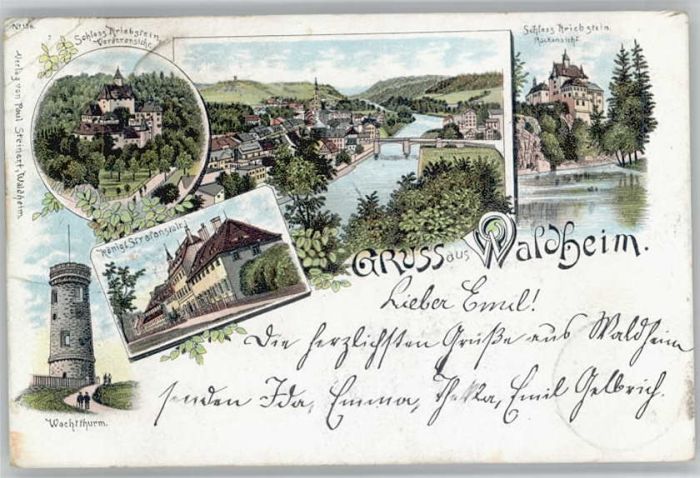 Nr. 186.
Schloss Kriebstein
Vorderansicht.
Schloss Kriebstein
Rückansicht.
Verlag von Paul Steinert, Waldheim.
Königl. Strafanstalt.
Gruss aus Waldheim.
Wachtthurm.
Lieber Emil!
Die herzlichsten Grüße aus Waldheim
senden Ida, Emma, Thekla, Emil Gelbrich.